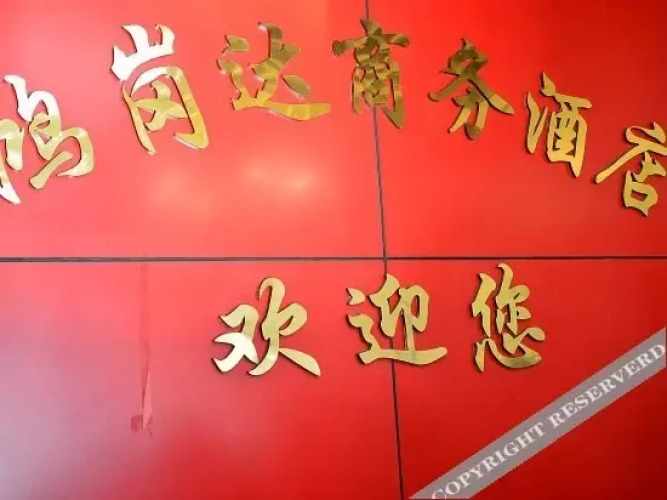 岗达商务酒店
欢迎您
COPYRIGHT RESERVERD